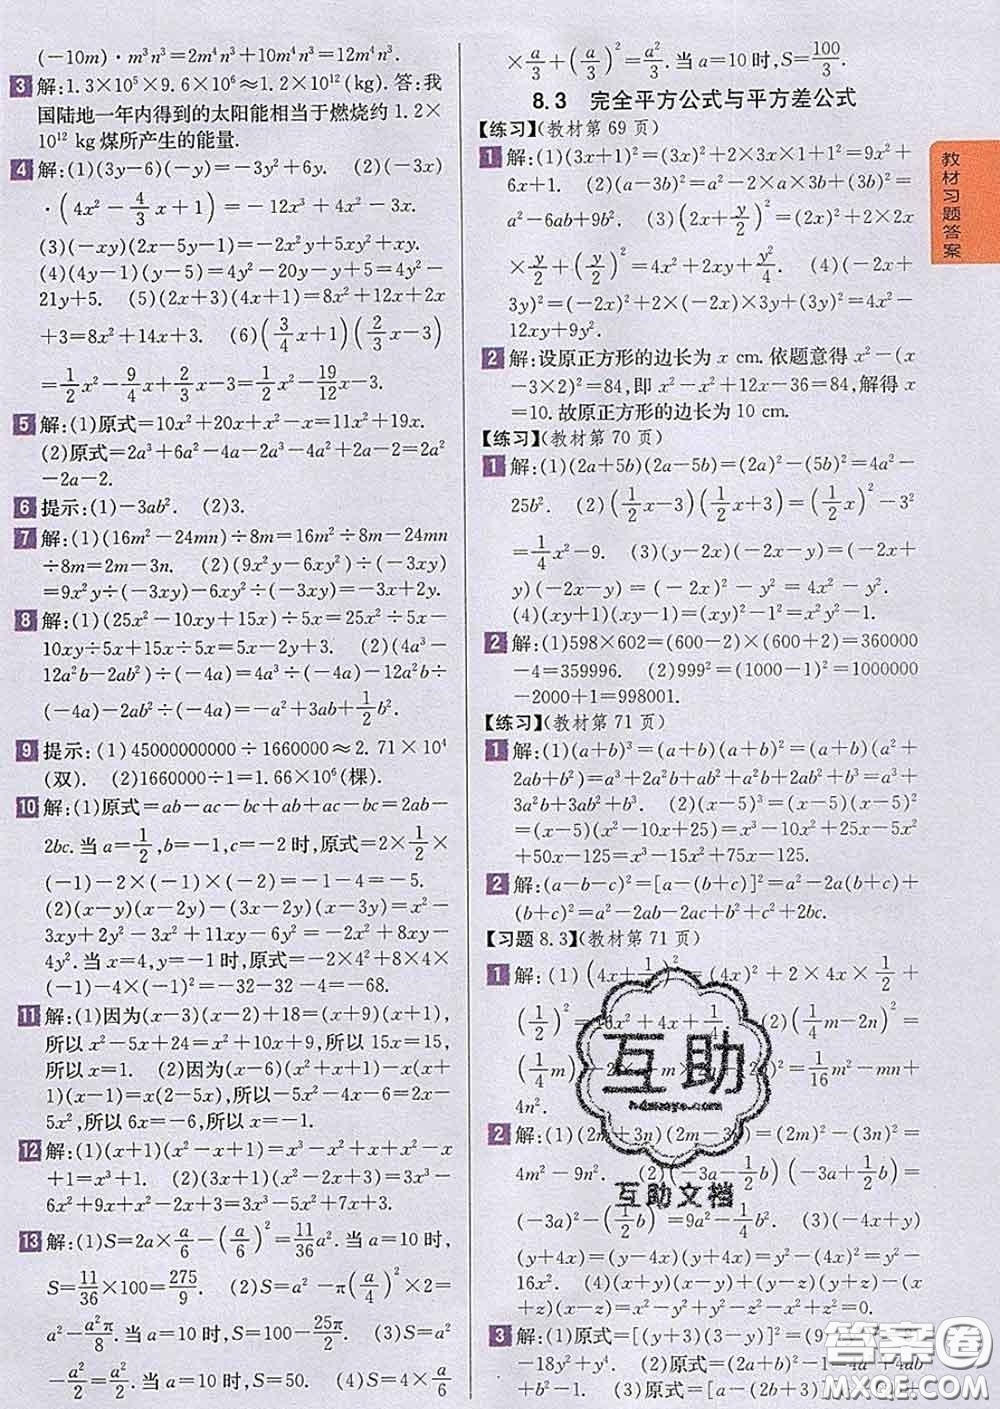 (-10m)·m³n³=2m⁴n³+10m⁴n³=12m⁴n³.
3 解:1.3×10⁵×9.6×10⁶≈1.2×10¹²(kg). 答:我
国陆地一年内得到的太阳能相当于燃烧约 1.2×
10¹² kg煤所产生的能量.
4 解:(1)(3y-6)(-y)=-3y²+6y. (2)(-3x)
·(4x²-4/3x+1)=-12x³+4x²-3x.
(3)(-xy)(2x-5y-1)=-2x²y+5xy²+xy.
(4)(4y-1)(y-5)=4y²-20y-y+5=4y²-
21y+5. (5)(2x+3)(4x+1)=8x²+12x+2x
+3=8x²+14x+3. (6)(3/4x+1)(2/3x-3)
=1/2x²-9/4x+2/3x-3=1/2x²-19/12x-3.
5 解:(1)原式=10x²+20x+x²-x=11x²+19x.
(2)原式=2a³+6a²-4a-2a³-4a²+2a-2=2a²
-2a-2.
6 提示:(1)-3ab². (2)3.
7 解:(1)(16m²-24mn)÷8m=16m²÷8m-24mn
÷8m=2m-3n. (2)(9x²y-6xy²)÷(-3xy)
=9x²y÷(-3xy)-6xy²÷(-3xy)=-3x+2y.
8 解:(1)(25x²-10xy+15x)÷5x=25x²÷5x-
10xy÷5x+15x÷5x=5x-2y+3. (2)(4a³-
12a²b-2ab²)÷(-4a)=4a³÷(-4a)-12a²b÷
(-4a)-2ab²÷(-4a)=-a²+3ab+1/2b².
9 提示:(1)45000000000÷1660000≈2.71×10⁴
(双). (2)1660000÷1=1.66×10⁶(棵).
10 解:(1)原式=ab-ac-bc+ab+ac-bc=2ab-
2bc. 当a=1/2,b=-1,c=-2时,原式=2×1/2×
(-1)-2×(-1)×(-2)=-1-4=-5.
(2)(x-y)(x-2y)-(3x-2y)(x-3y)=x²-
3xy+2y²-3x²+11xy-6y²=-2x²+8xy-
4y². 当x=4,y=-1时,原式=-2×4²+8×4×
(-1)-4×(-1)²=-32-32-4=-68.
11 解:(1)因为(x-3)(x-2)+18=(x+9)(x+1),
所以x²-5x+24=x²+10x+9,所以15x=15,
所以x=1. (2)因为(x-6)(x²+x+1)=
x(x+1)(x-6),所以x³-5x²-5x-6=x³-5x²
-6x,所以-5x-6=-6x,所以x=6.
12 解:(1)(x+1)(x²-x+1)=x³-x²+x+x²-x
+1=x³+1. (2)(3x+1)(x²-2x+3)=3x³-
6x²+9x+x²-2x+3=3x³-5x²+7x+3.
13 解:(1)S=2a×a/6-(a/6)²=11/36a². 当a=10时,
S=11/36×100=275/9. (2)S=a²-π(a/4)²×2=
a²-a²π/8. 当a=10时,S=100-25π/2. (3)S=a²
-a²/2=a²/2. 当a=10时,S=50. (4)S=4×a/6
×a/3+(a/3)²=a²/3. 当a=10时,S=100/3.
8.3 完全平方公式与平方差公式
【练习】(教材第69页)
1 解:(1)(3x+1)²=(3x)²+2×3x×1+1²=9x²+
6x+1. (2)(a-3b)²=a²-2×a×3b+(3b)²
=a²-6ab+9b². (3)(2x+y/2)²=(2x)²+2×2x
×y/2+(y/2)²=4x²+2xy+y²/4. (4)(-2x+
3y)²=(-2x)²+2×(-2x)×3y+(3y)²=4x²-
12xy+9y².
2 解:设原正方形的边长为x cm. 依题意得x²-(x
-3×2)²=84,即x²-x²+12x-36=84,解得x
=10. 故原正方形的边长为10 cm.
【练习】(教材第70页)
1 解:(1)(2a+5b)(2a-5b)=(2a)²-(5b)²=4a²-
25b². (2)(1/2x-3)(1/2x+3)=(1/2x)²-3²
=1/4x²-9. (3)(y-2x)(-2x-y)=(-2x+
y)(-2x-y)=(-2x)²-y²=4x²-y².
(4)(xy+1)(xy-1)=(xy)²-1²=x²y²-1.
2 解:(1)598×602=(600-2)×(600+2)=360000
-4=359996. (2)999²=(1000-1)²=1000000
-2000+1=998001.
【练习】(教材第71页)
1 解:(1)(a+b)³=(a+b)²(a+b)=(a²+
2ab+b²)(a+b)=a³+2a²b+ab²+a²b+2ab²+b³
=a³+3a²b+3ab²+b³. (2)(x-5)³=(x-5)²(x-5)
=(x-5)(x²-10x+25)=x³-10x²+25x-5x²
+50x-125=x³-15x²+75x-125.
2 解:(a-b-c)²=[a-(b+c)]²=a²-2a(b+c)+
(b+c)²=a²-2ab-2ac+b²+c²+2bc.
【习题8.3】(教材第71页)
1 解:(1)(4x+1/2)²=(4x)²+2×4x×1/2+
(1/2)²=16x²+4x+1/4. (2)(1/4m-2n)²=
(1/4m)² =1/16m²-mn+
4n².
2 解:(1)(2m+3n)(2m-3n)=(2m)²-(3n)²=
4m²-9n². (2)(-3a-1/2b)(-3a+1/2b)=
(-3a)²-(1/2b)²=9a²-1/4b². (3)(-4x+y)
(y+4x)=(y-4x)(y+4x)=y²-(4x)²=y²-
16x². (4)(x+y)(x-y)+(y+z)(y-z)+(x
+z)(z-x)=x²-y²+y²-z²+z²-x²=0.
3 解:(1)原式=[(y+3)(3-y)]²=(9-y²)²=81
-18y²+y⁴. (2)原式=
b²-1. (3)原式=[a-(2b+3)][a+
教材习题答案
互助
互助文档
答案圈